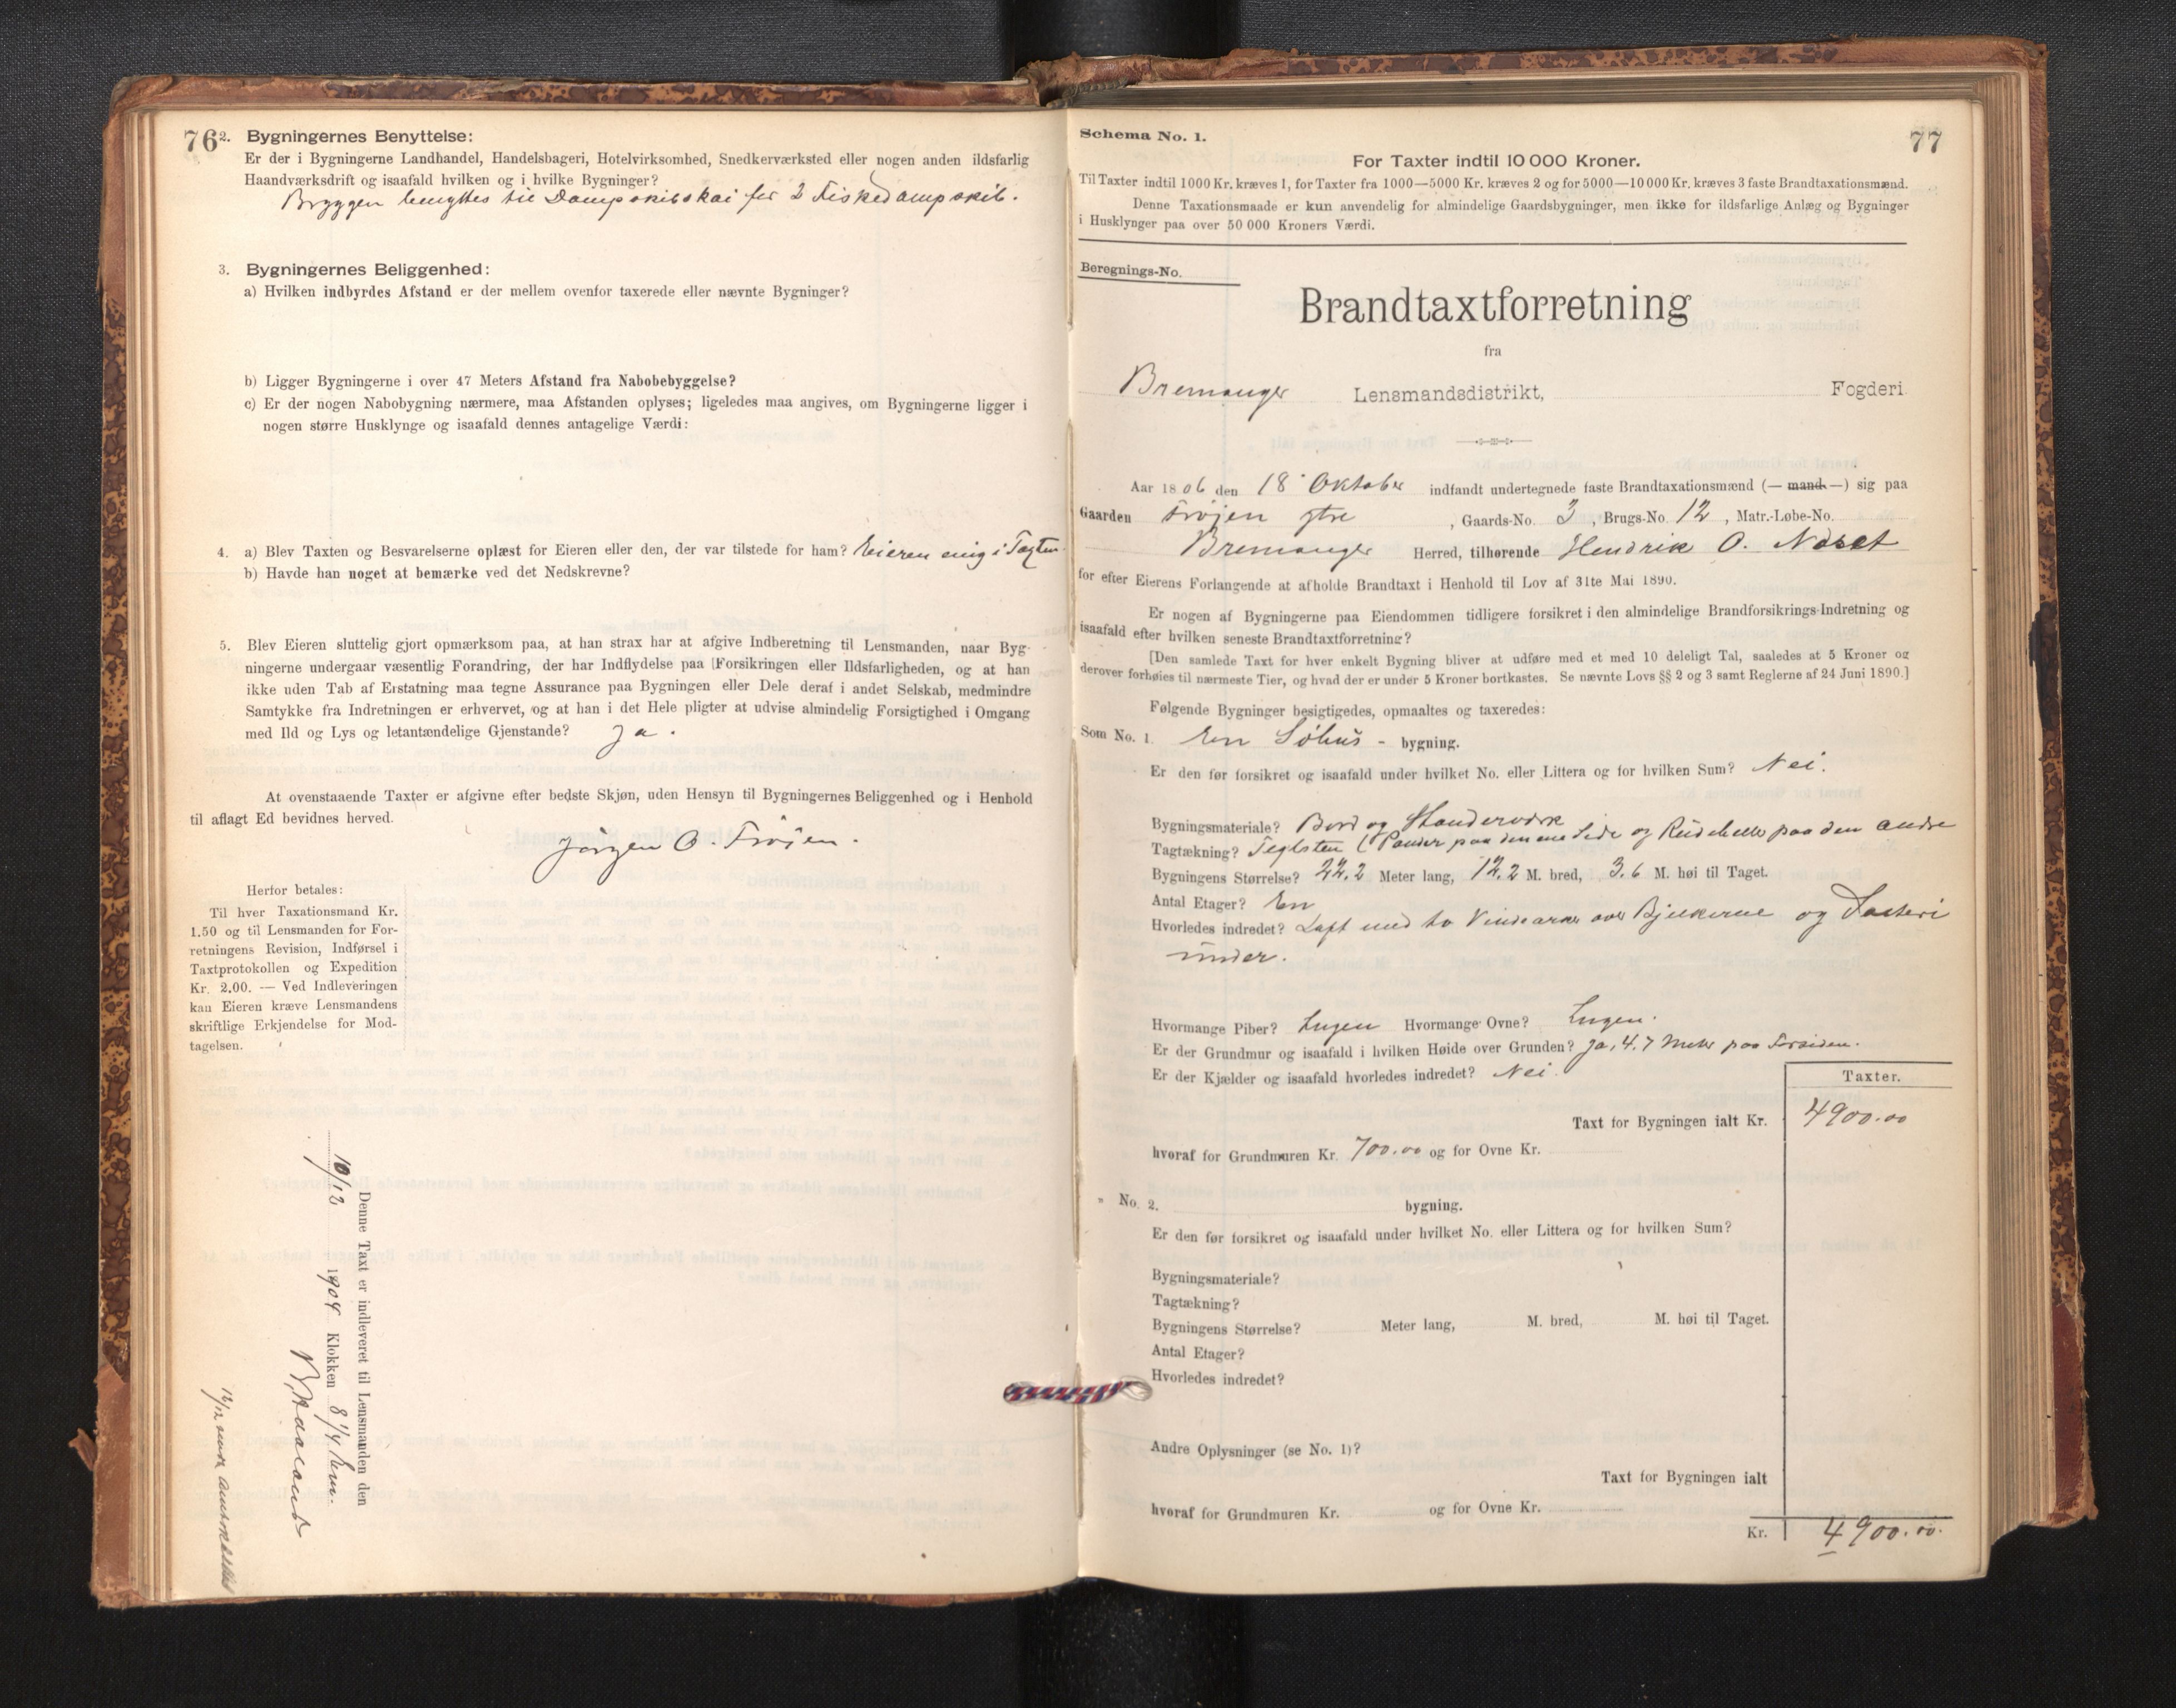 76
2. Bygningernes Benyttelse:
Er der i Bygningerne Landhandel, Handelsbageri, Hotelvirksomhed, Snedkerværksted eller nogen anden ildsfarlig
Haandværksdrift og isaafald hvilken og i hvilke Bygninger?
Bryggen benyttes til Dampskibskai for 2 Fiskedampskib.
3. Bygningernes Beliggenhed:
a) Hvilken indbyrdes Afstand er der mellem ovenfor taxerede eller nævnte Bygninger?
b) Ligger Bygningerne i over 47 Meters Afstand fra Nabobebyggelse?
c) Er der nogen Nabobygning nærmere, maa Afstanden oplyses; ligeledes maa angives, om Bygningerne ligger i
nogen større Husklynge og isaafald dennes antagelige Værdi:
4. a) Blev Taxten og Besvarelserne oplæst for Eieren eller den, der var tilstede for ham? Eieren enig i Taxten
b) Havde han noget at bemærke ved det Nedskrevne?
5. Blev Eieren sluttelig gjort opmærksom paa, at han strax har at afgive Indberetning til Lensmanden, naar Byg-
ningerne undergaar væsentlig Forandring, der har Indflydelse paa Forsikringen eller Ildsfarligheden, og at han
ikke uden Tab af Erstatning maa tegne Assurance paa Bygningen eller Dele deraf i andet Selskab, medmindre
Samtykke fra Indretningen er erhvervet, og at han i det Hele pligter at udvise almindelig Forsigtighed i Omgang
med Ild og Lys og letantændelige Gjenstande? Ja.
At ovenstaaende Taxter er afgivne efter bedste Skjøn, uden Hensyn til Bygningernes Beliggenhed og i Henhold
til aflagt Ed bevidnes herved.
Jörgen O. Fröjen.
Herfor betales:
Til hver Taxationsmand Kr.
1.50 og til Lensmanden for For-
retningens Revision, Indførsel i
Taxtprotokollen og Expedition
Kr. 2.00. — Ved Indleveringen
kan Eieren kræve Lensmandens
skriftlige Erkjendelse for Mod-
tagelsen.
Denne Taxt er indleveret til Lensmanden den
10/12 1904 Klokken 8 1/4 Em.
12/12
77
Schema No. 1.
For Taxter indtil 10 000 Kroner.
Til Taxter indtil 1000 Kr. kræves 1, for Taxter fra 1000—5000 Kr. kræves 2 og for 5000—10 000 Kr. kræves 3 faste Brandtaxationsmænd.
Denne Taxationsmaade er kun anvendelig for almindelige Gaardsbygninger, men ikke for ildsfarlige Anlæg og Bygninger
i Husklynger paa over 50 000 Kroners Værdi.
Beregnings-No.
Brandtaxtforretning
fra
Bremanger Lensmandsdistrikt, Fogderi
Aar 1806 den 18 Oktober indfandt undertegnede faste Brandtaxationsmænd (— mand —) sig paa
Gaarden Frøjen ytre, Gaards-No. 3, Brugs-No. 12, Matr.-Løbe-No.
Bremanger Herred, tilhørende Hendrik O. Nöset
for efter Eierens Forlangende at afholde Brandtaxt i Henhold til Lov af 31te Mai 1890.
Er nogen af Bygningerne paa Eiendommen tidligere forsikret i den almindelige Brandforsikrings-Indretning og
isaafald efter hvilken seneste Brandtaxtforretning?
[Den samlede Taxt for hver enkelt Bygning bliver at udføre med et med 10 deleligt Tal, saaledes at 5 Kroner og
derover forhøies til nærmeste Tier, og hvad der er under 5 Kroner bortkastes. Se nævnte Lovs §§ 2 og 3 samt Reglerne af 24 Juni 1890.]
Følgende Bygninger besigtigedes, opmaaltes og taxeredes:
Som No. 1. En Söhus - bygning.
Er den før forsikret og isaafald under hvilket No. eller Littera og for hvilken Sum? Nei.
Bygningsmateriale? Bord og Standerværk
Tagtækning? Teglsten (Pander paa den ene Side og paa den andre
Bygningens Størrelse? 22.2 Meter lang, 12.2 M. bred, 3.6 M. høi til Taget.
Antal Etager? En
Hvorledes indredet? Loft med to Vindearker over Bjelkerne og
under.
Hvormange Piber? Ingen Hvormange Ovne? Ingen.
Er der Grundmur og isaafald i hvilken Høide over Grunden? Ja, 4.7 Meter paa Forsiden.
Er der Kjælder og isaafald hvorledes indredet? Nei.
Taxter.
Taxt for Bygningen ialt Kr. 4900.00
hvoraf for Grundmuren Kr. 700.00 og for Ovne Kr.
" No. 2. bygning.
Er den før forsikret og isaafald under hvilket No. eller Littera og for hvilken Sum?
Bygningsmateriale?
Tagtækning?
Bygningens Størrelse? Meter lang, M. bred, M. høi til Taget.
Antal Etager?
Hvorledes indredet?
Andre Oplysninger (se No. 1)?
Taxt for Bygningen ialt
hvoraf for Grundmuren Kr. og for Ovne Kr.
Kr. 4900.00.